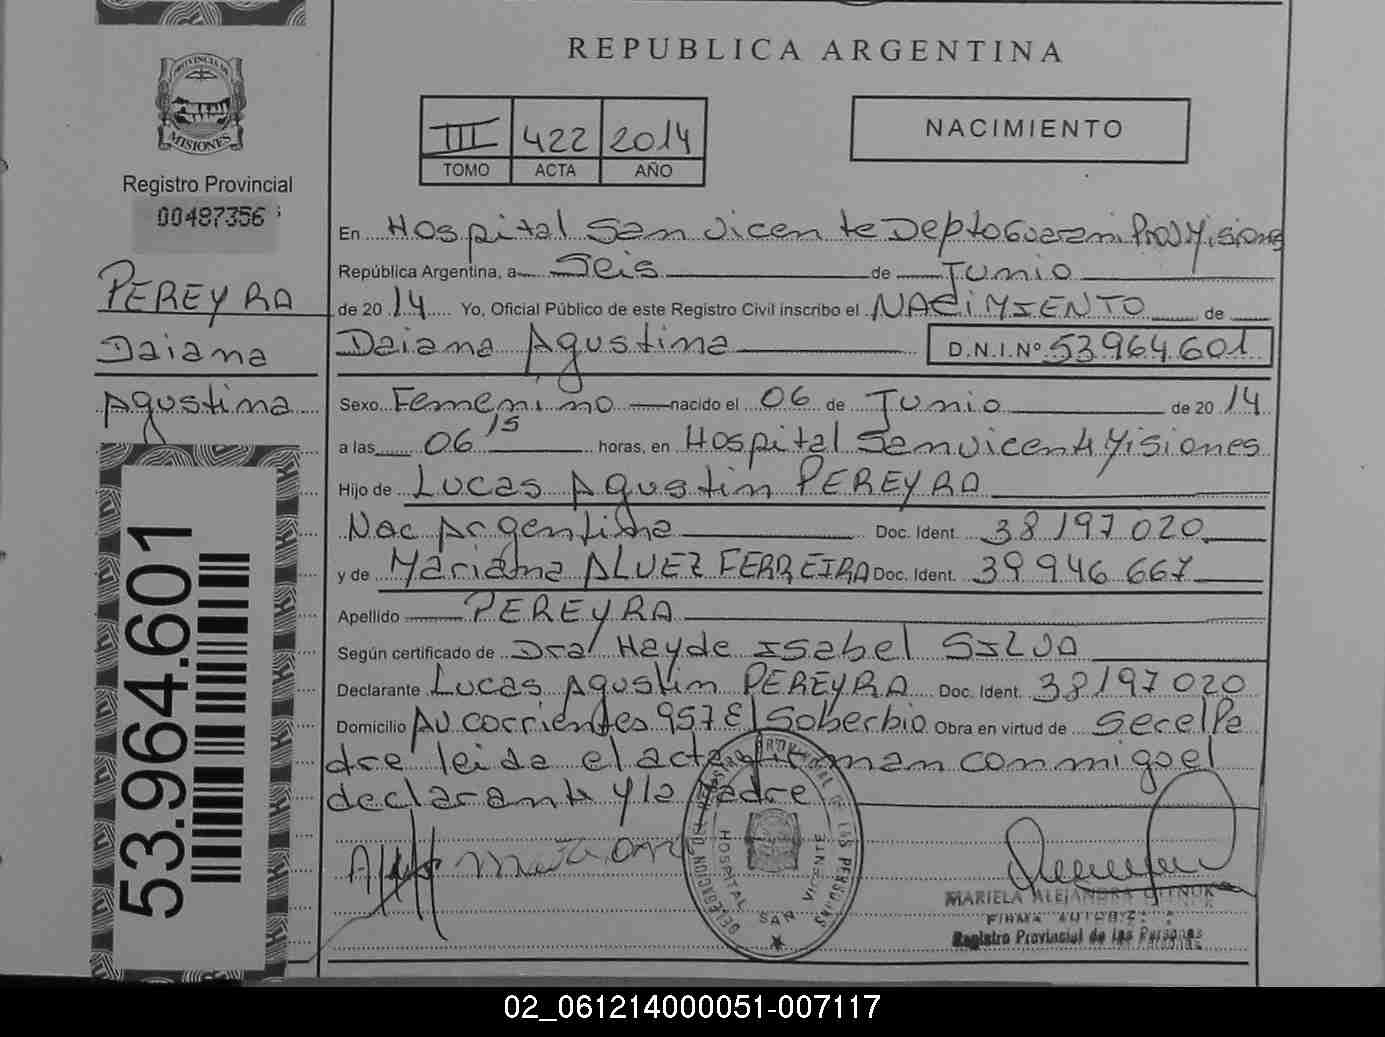 REPUBLICA ARGENTINA
PROVINCIA DE
MISIONES
III 422 2014
TOMO ACTA AÑO
NACIMIENTO
Registro Provincial
00487356
PEREYRA
Daiana
Agustina
53.964.601
En Hospital San vicente Depto Guarani Prov Misiones
República Argentina, a Seis de Junio
de 2014 Yo, Oficial Público de este Registro Civil inscribo el NACIMIENTO de
Daiana Agustina D.N.I.Nº 53964601
Sexo Femenino nacido el 06 de Junio de 2014
a las 06 15 horas, en Hospital San vicente Misiones
Hijo de Lucas Agustin PEREYRA
Nac Argentina Doc. Ident. 38197020
y de Mariana ALVEZ FERREIRA Doc. Ident. 39946667
Apellido PEREYRA
Según certificado de Dra Hayde Isabel SILVA
Declarante Lucas Agustin PEREYRA Doc. Ident. 38197020
Domicilio Av corrientes 957 El Soberbio Obra en virtud de ser el Pa
dre leida el acta firman conmigo el
declarante y la Madre
HOSPITAL SAN VICENTE
MARIELA ALEJANDRA
FIRMA AUTORIZADA
Registro Provincial de las Personas
02_061214000051-007117